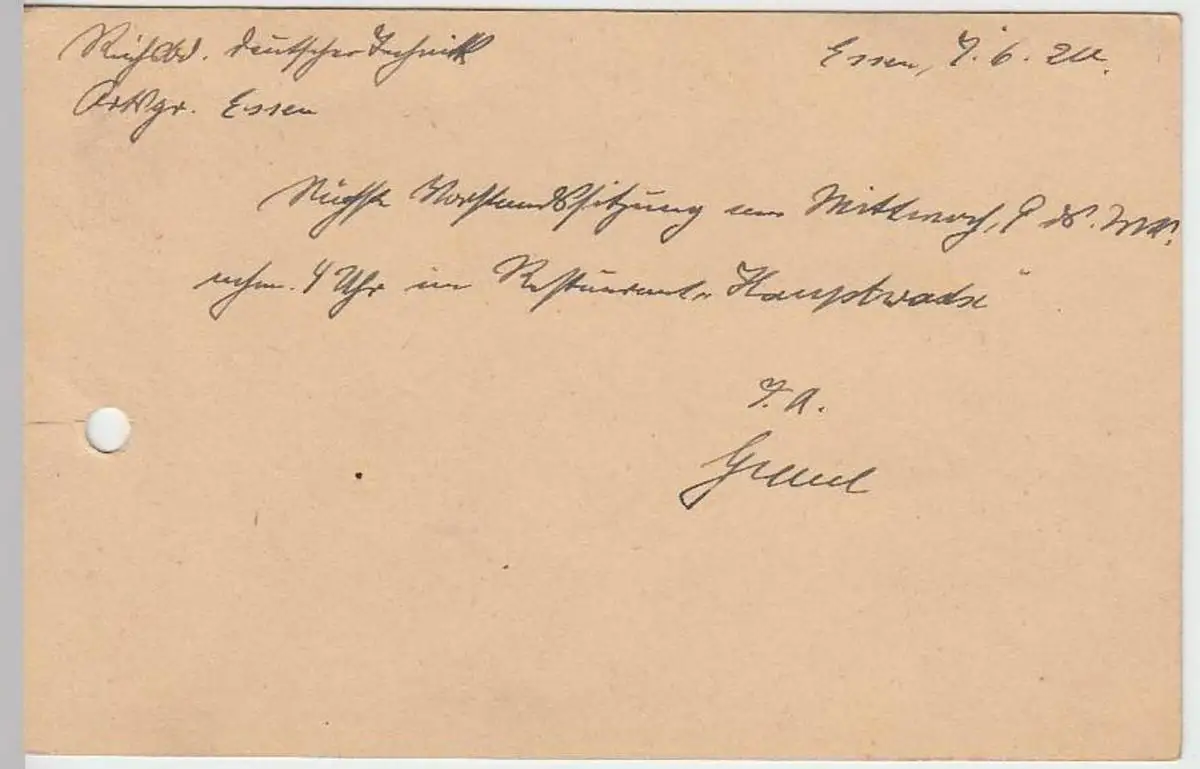 Reichsbd. deutscher Technik
Essen, 7.6.20.
Ortsgr. Essen
Nächste Vorstandssitzung am Mittwoch, 9 ds. Mts.
nachm. 4 Uhr im Restaurant „Hauptwache"
I.A.